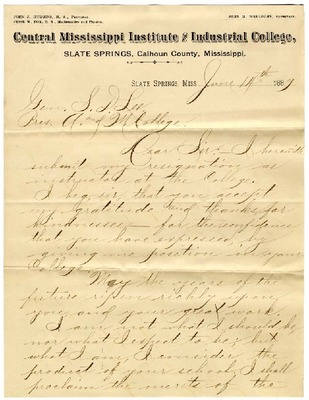 Central Mississippi Institute and Industrial College,
SLATE SPRINGS, Calhoun County, Mississippi.
SLATE SPRINGS, MISS. June 14th 1889.
Gen. S. D. Lee,
Pres. A. and M. College.
Dear Sir: I herewith
submit my resignation as
instructor at the College.
I beg, sir, that you accept
my gratitude and thanks for
kindnesses, for the confidence
that you have expressed by
giving me position in your
College.
May the years of the
future ripen richly upon
you and your great work.
I am not what I should be
nor what I expect to be; but
what I am, I consider the
product of your school. I shall
proclaim the merits of the